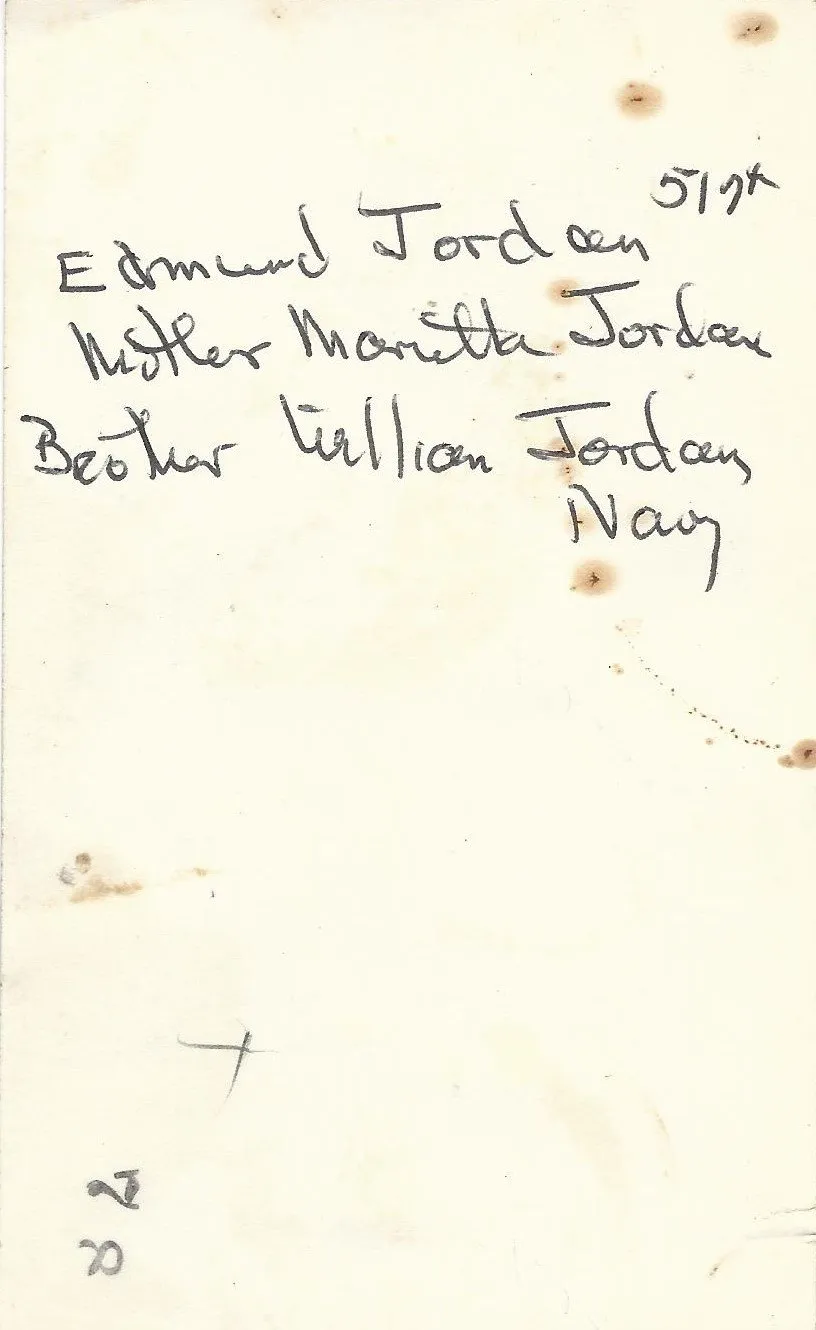 Edmund Jordan
Mother Marietta Jordan
Brother William Jordan
Navy